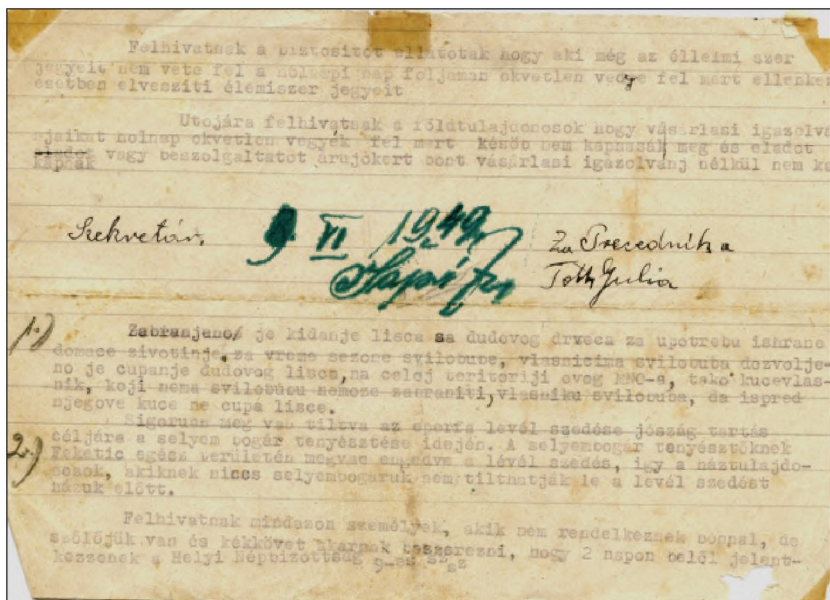 Felhivatnak a biztositot ellátotak hogy aki még az éllelmi szer
jegyeit nem vete fel a holnapi nap foljaman okvetlen vegye fel mert ellenkez
esetben elvesziti élemiszer jegyeit
Utojára felhivatnak a földtulajdonosok hogy vásárlasi igazolvá
nyaikat holnap okvetlen vegyék fel mert késöb nem kaphassák meg és eladot
vagy beszolgaltatot árujókert bont vásárlasi igazolvánj nélkül nem ka
kapnak
Szekretár.
9 VI 1949
Za Precednika
Tóth Julia
1.) Zabranjeno je kidanje lisca sa dudovog drveca za upotrebu ishrane
domace zivotinje, za vreme sezone svilobube, vlasnicima svilobuba dozvolje-
no je cupanje dudovog lisca, na celoj teritoriji ovog MNO-a, tako kucevlas-
nik, koji nema svilobubu nemoze zabraniti, vlasniku svilobuba, da ispred
njegove kuce ne cupa lisce.
2.) Sigoruan meg van tiltva az eperfa levél szedése jószág tartás
céljára a selyem bogár tenyésztése idején. A selyembogár tenyésztöknek
Feketic egész területén megvan engedve a lévél szedés, igy a háztulajdo-
nosok, akiknek nincs selyembogaruk nem tilthatják le a levél szedést
házuk elött.
Felhivatnak mindazon személyek, akik nem rendelkeznek bonnal, de
szölöjük van és kékkövet akarnak beszerezni, hogy 2 napon belöl jelent-
kezzenek a Helyi Népbizottság 9-es sz